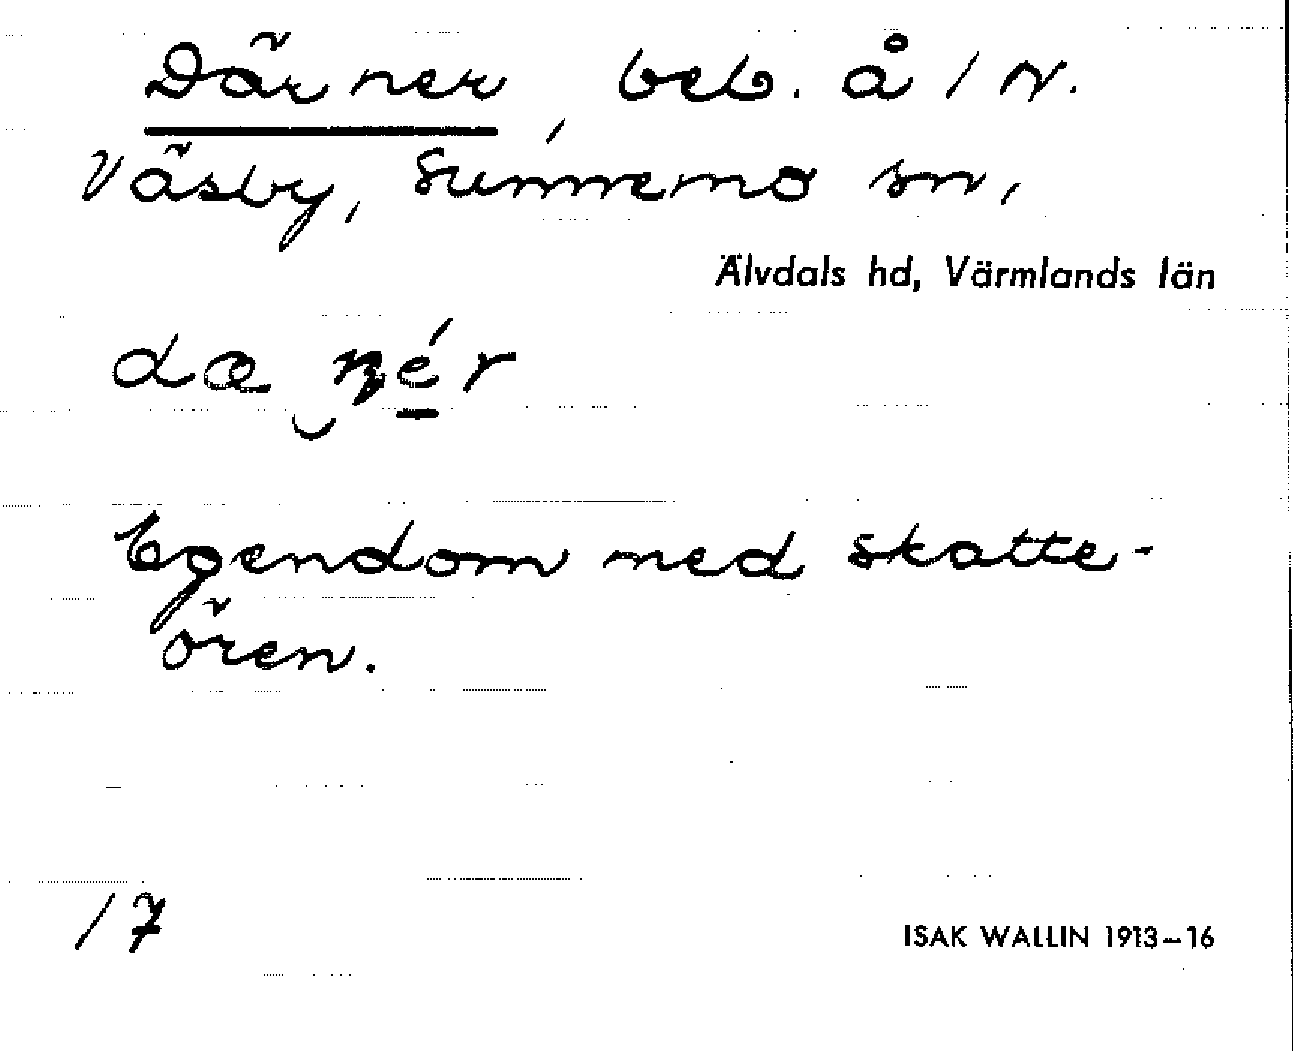 Där ner, beb. å 1 N.
Väsby, Sunnemo sn,
Älvdals hd, Värmlands län
dæ ɳér
Egendom med skatte-
ören.
17
ISAK WALLIN 1913–16